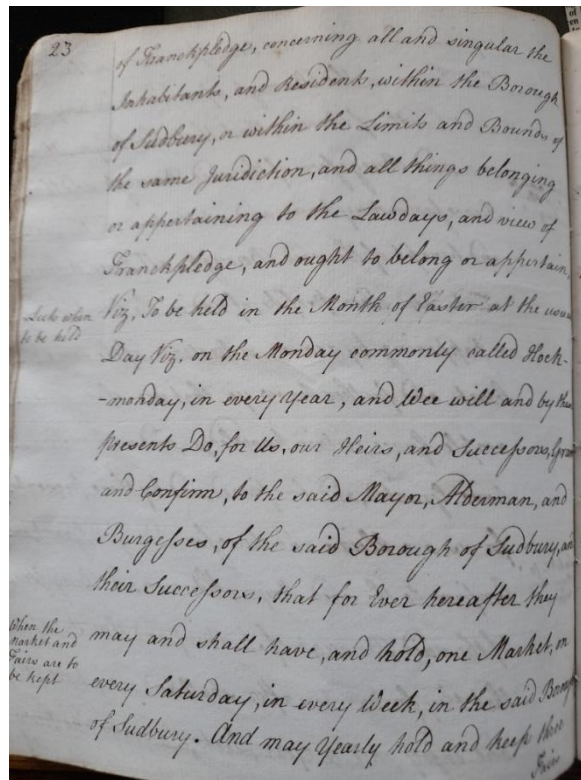 23
of Franckpledge, concerning all and singular the
Inhabitants, and Residents, within the Borough
of Sudbury, or within the Limits and Bounds of
the same Juridiction, and all things belonging
or appertaining to the Lawdays, and view of
Franckpledge, and ought to belong or appertain,
Leets when
to be held
Viz, To be held in the Month of Easter at the
Day Viz. on the Monday commonly called Hock-
-monday, in every Year, and Wee will and by
presents Do, for Us, our Heirs, and Successors,
and Confirm, to the said Mayor, Alderman, and
Burgesses, of the said Borough of Sudbury,
their Successors, that for Ever hereafter they
When the
market and
Fairs are to
be kept
may and shall have, and hold, one Market, on
every Saturday, in every Week, in the said
of Sudbury. And may Yearly hold and keep three
Fairs